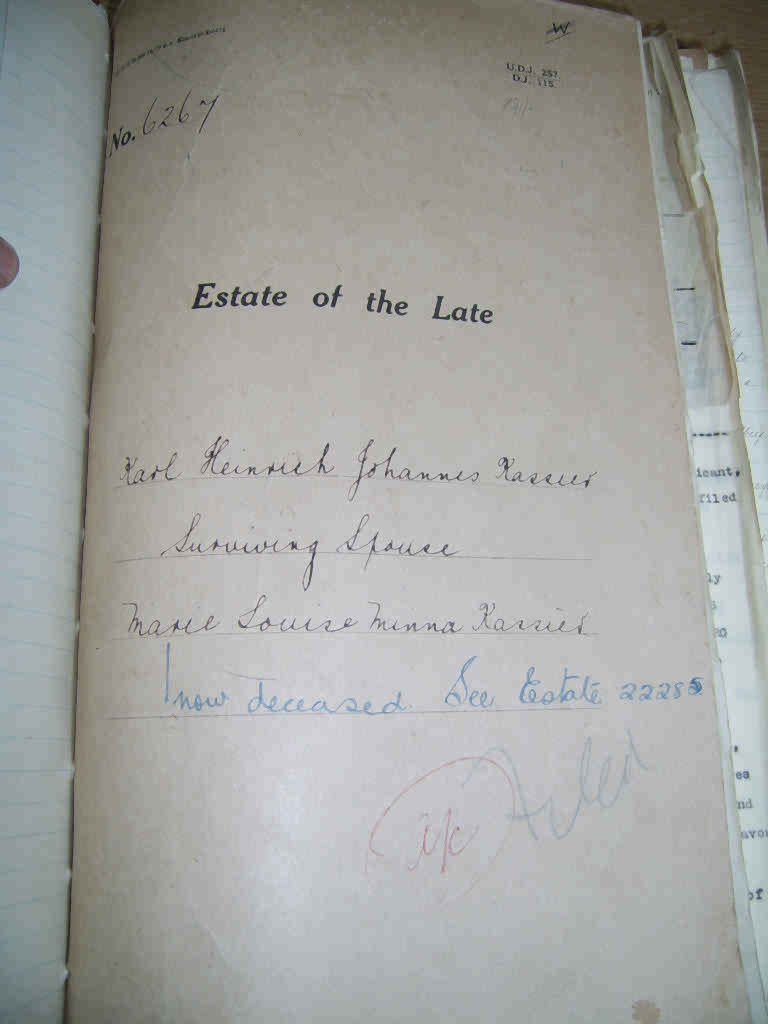 W
U.D.J. 257.
D.J. 115.
No. 6267
Estate of the Late
Karl Heinrich Johannes Kassier
Surviving Spouse
Marie Louise Minna Kassier
now deceased. See Estate 22285
Filed
icant,
filed
ly
es
nd
avou
of